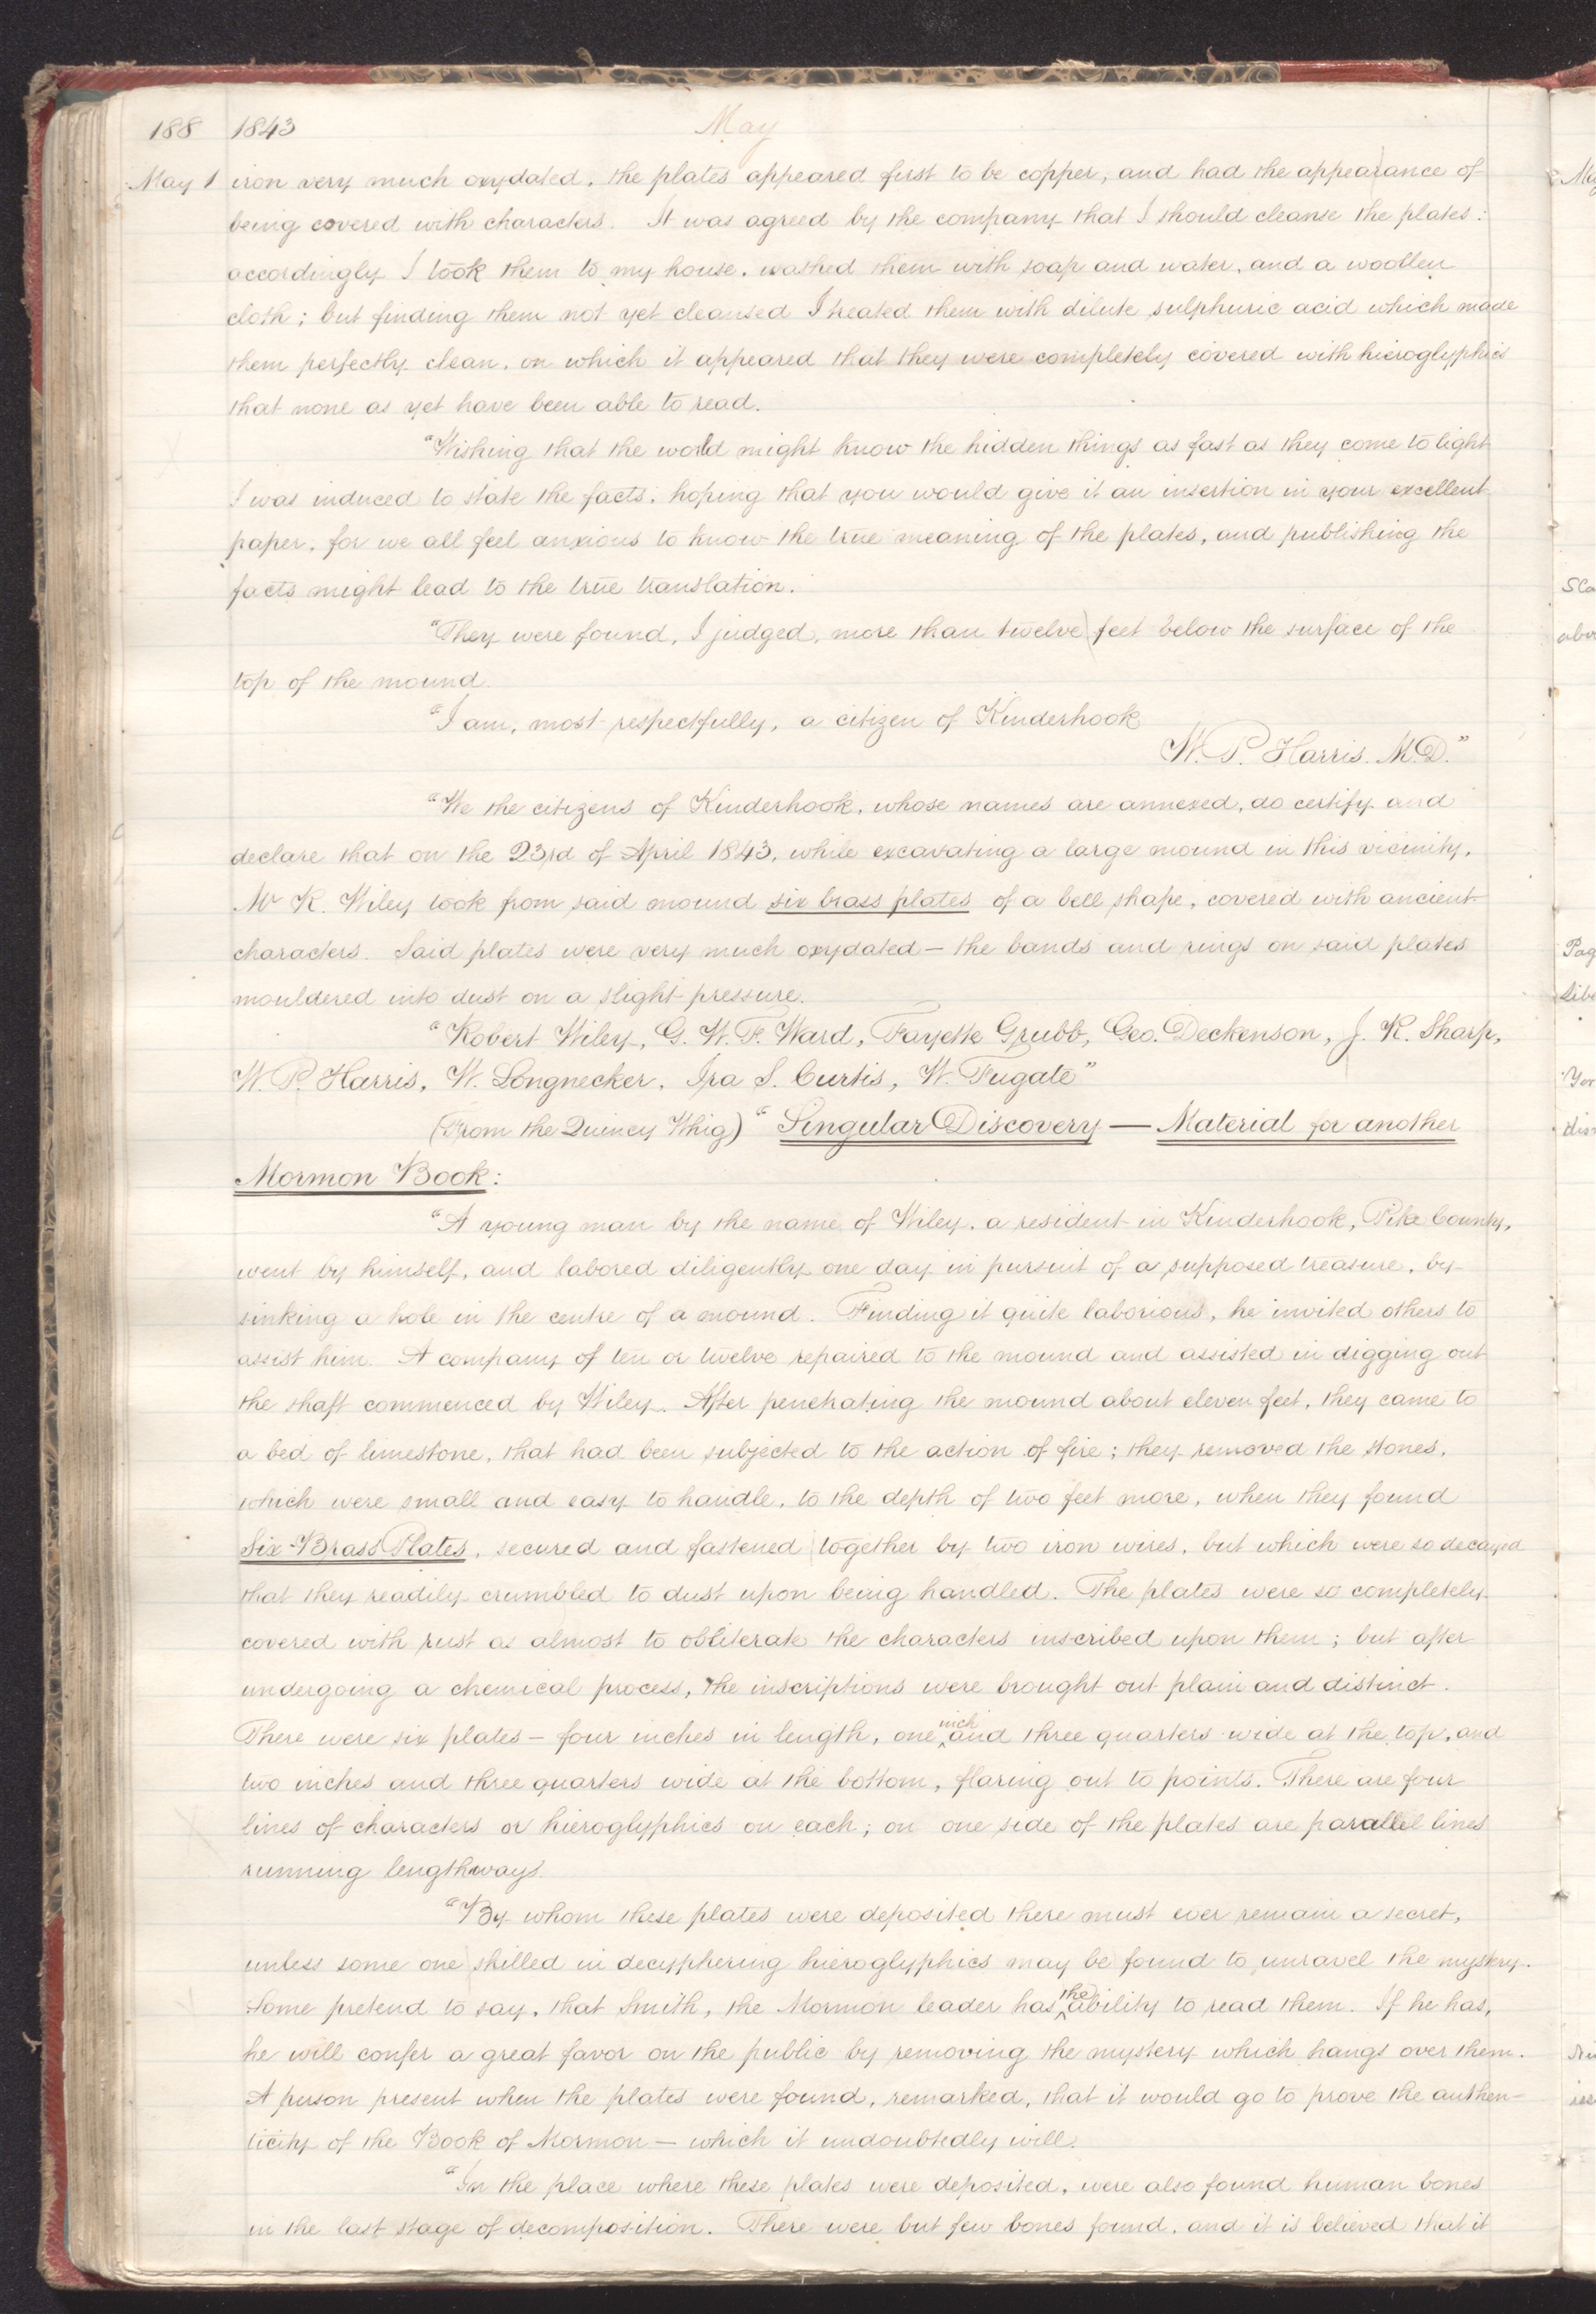 188 1843 May
May 1 iron very much oxydated, the plates appeared first to be copper, and had the appearance of
being covered with characters. It was agreed by the company that I should cleanse the plates:
accordingly I took them to my house, washed them with soap and water, and a woollen
cloth; but finding them not yet cleansed I treated them with dilute sulphuric acid which made
them perfectly clean, on which it appeared that they were completely covered with hieroglyphics
that none as yet have been able to read.
"Wishing that the world might know the hidden things as fast as they come to light
I was induced to state the facts, hoping that you would give it an insertion in your excellent
paper, for we all feel anxious to know the true meaning of the plates, and publishing the
facts might lead to the true translation.
"They were found, I judged, more than twelve feet below the surface of the
top of the mound.
"I am, most respectfully, a citizen of Kinderhook
W. P. Harris. M.D."
"We the citizens of Kinderhook, whose names are annexed, do certify and
declare that on the 23rd of April 1843, while excavating a large mound in this vicinity,
Mr R. Wiley took from said mound six brass plates of a bell shape, covered with ancient
characters. Said plates were very much oxydated — the bands and rings on said plates
mouldered into dust on a slight pressure.
"Robert Wiley, G. W. F. Ward, Fayette Grubb, Geo. Deckenson, J. R. Sharp,
W. P. Harris, W. Longnecker, Ira S. Curtis, W. Fugate"
(From the Quincy Whig) "Singular Discovery — Material for another
Mormon Book:
"A young man by the name of Wiley, a resident in Kinderhook, Pike County,
went by himself, and labored diligently one day in pursuit of a supposed treasure, by
sinking a hole in the centre of a mound. Finding it quite laborious, he invited others to
assist him. A company of ten or twelve repaired to the mound and assisted in digging out
the shaft commenced by Wiley. After penetrating the mound about eleven feet, they came to
a bed of limestone, that had been subjected to the action of fire; they removed the stones,
which were small and easy to handle, to the depth of two feet more, when they found
Six Brass Plates, secured and fastened together by two iron wires, but which were so decayed
that they readily crumbled to dust upon being handled. The plates were so completely
covered with rust as almost to obliterate the characters inscribed upon them; but after
undergoing a chemical process, the inscriptions were brought out plain and distinct.
There were six plates — four inches in length, one inch and three quarters wide at the top, and
two inches and three quarters wide at the bottom, flaring out to points. There are four
lines of characters or hieroglyphics on each; on one side of the plates are parallel lines
running lengthways.
"By whom these plates were deposited there must ever remain a secret,
unless some one skilled in decyphering hieroglyphics may be found to unravel the mystery.
Some pretend to say, that Smith, the Mormon leader has the ability to read them. If he has,
he will confer a great favor on the public by removing the mystery which hangs over them.
A person present when the plates were found, remarked, that it would go to prove the authen-
ticity of the Book of Mormon — which it undoubtedly will.
"In the place where these plates were deposited, were also found human bones
in the last stage of decomposition. There were but few bones found, and it is believed that it